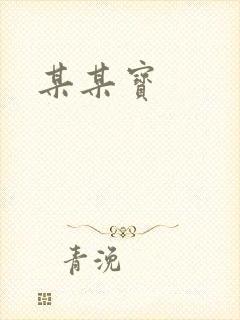 某某寶
青浼